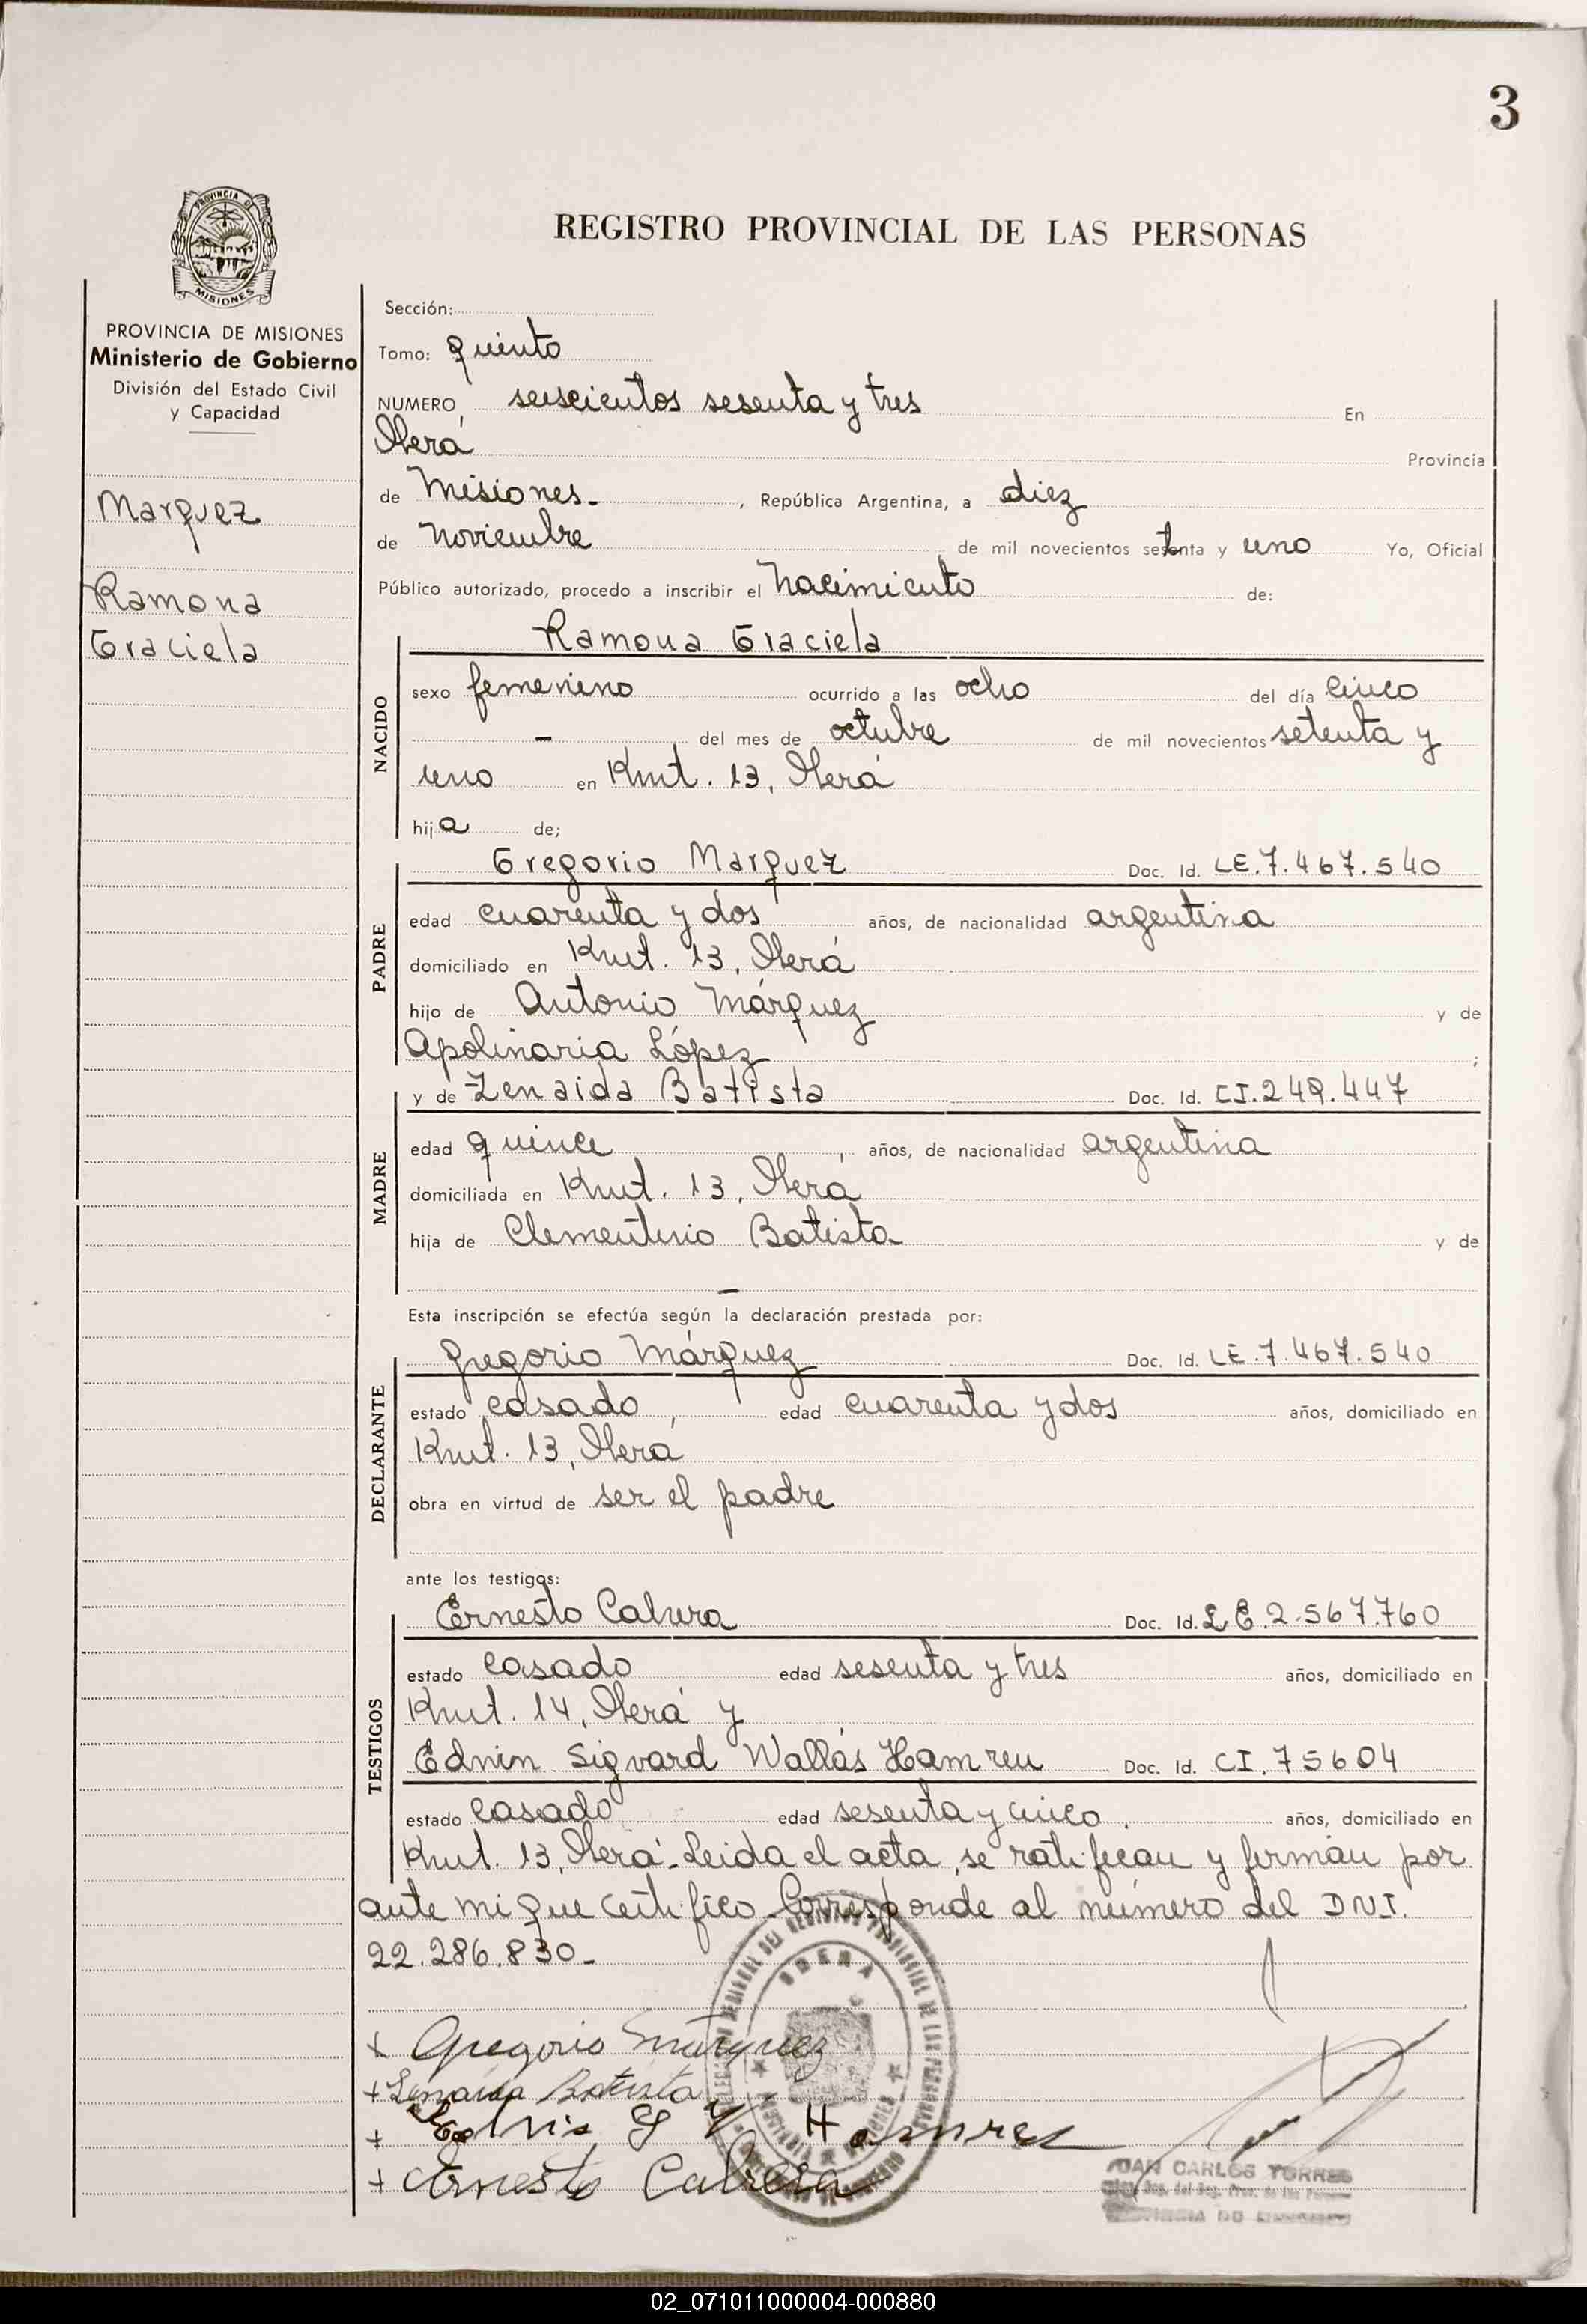 3
REGISTRO PROVINCIAL DE LAS PERSONAS
PROVINCIA DE
MISIONES
PROVINCIA DE MISIONES
Ministerio de Gobierno
División del Estado Civil
y Capacidad
Marquez
Ramona
Graciela
Sección:
Tomo: quinto
NUMERO, seiscientos sesenta y tres En
Oberá Provincia
de Misiones. , República Argentina, a diez
de noviembre de mil novecientos setenta y uno Yo, Oficial
Público autorizado, procedo a inscribir el nacimiento de:
NACIDO
Ramona Graciela
sexo femenino ocurrido a las ocho del día cinco
– del mes de octubre de mil novecientos setenta y
uno en Kmt. 13, Oberá
hija de;
PADRE
Gregorio Marquez Doc. Id. LE.7.467.540
edad cuarenta y dos años, de nacionalidad argentina
domiciliado en Kmt. 13, Oberá
hijo de Antonio Márquez y de
Apolinaria López ;
MADRE
y de Zenaida Batista Doc. Id. CI.249.447
edad quince años, de nacionalidad argentina
domiciliada en Kmt. 13, Oberá
hija de Clementino Batista y de
–
Esta inscripción se efectúa según la declaración prestada por:
DECLARANTE
Gregorio Márquez Doc. Id. LE.7.467.540
estado casado, edad cuarenta y dos años, domiciliado en
Kmt. 13, Oberá
obra en virtud de ser el padre
ante los testigos:
TESTIGOS
Ernesto Cabrera Doc. Id. LE.2.567.760
estado casado edad sesenta y tres años, domiciliado en
Kmt. 14, Oberá y
Edwin Sigvard Wallás Hamren Doc. Id. CI.75604
estado casado edad sesenta y cinco. años, domiciliado en
Kmt. 13, Oberá-Leida el acta, se ratifican y firman por
ante mi que certifico-Corresponde al número del DNI.
22.286.830-
OBERA
+ Gregorio Márquez
+ Zenaida Batista
+ Edwin S W Hamren
+ Ernesto Cabrera
JUAN CARLOS TORRES
02_071011000004-000880